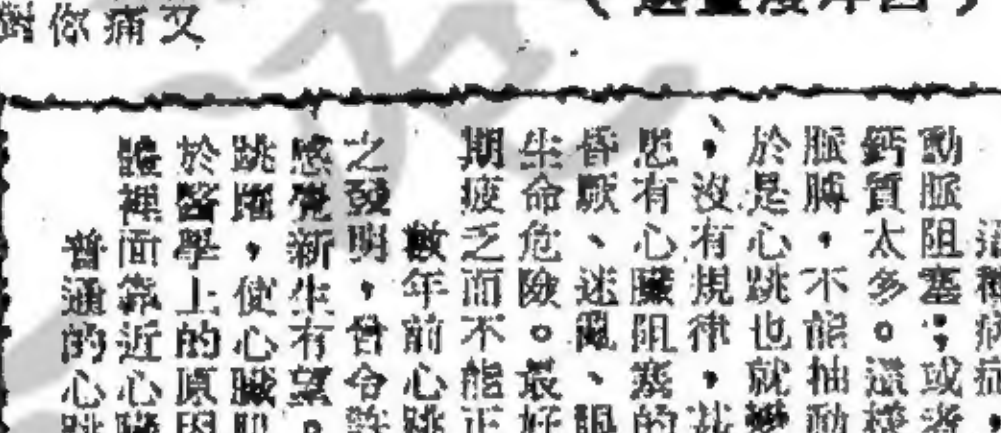 對你痛又
這種病症，
動脈阻塞；或者
鈣質太多。這樣
脈膊，不能抽動
於是心跳也就變
，沒有規律，甚
患有心臟阻塞的
昏厥、迷亂、眼
生命危險。最好
期疲乏而不能正
數年前心跳
之發明，曾令許
感覺新生有望。
跳躍，使心臟肌
於醫學上的原因
體裡面靠近心臟
普通的心跳